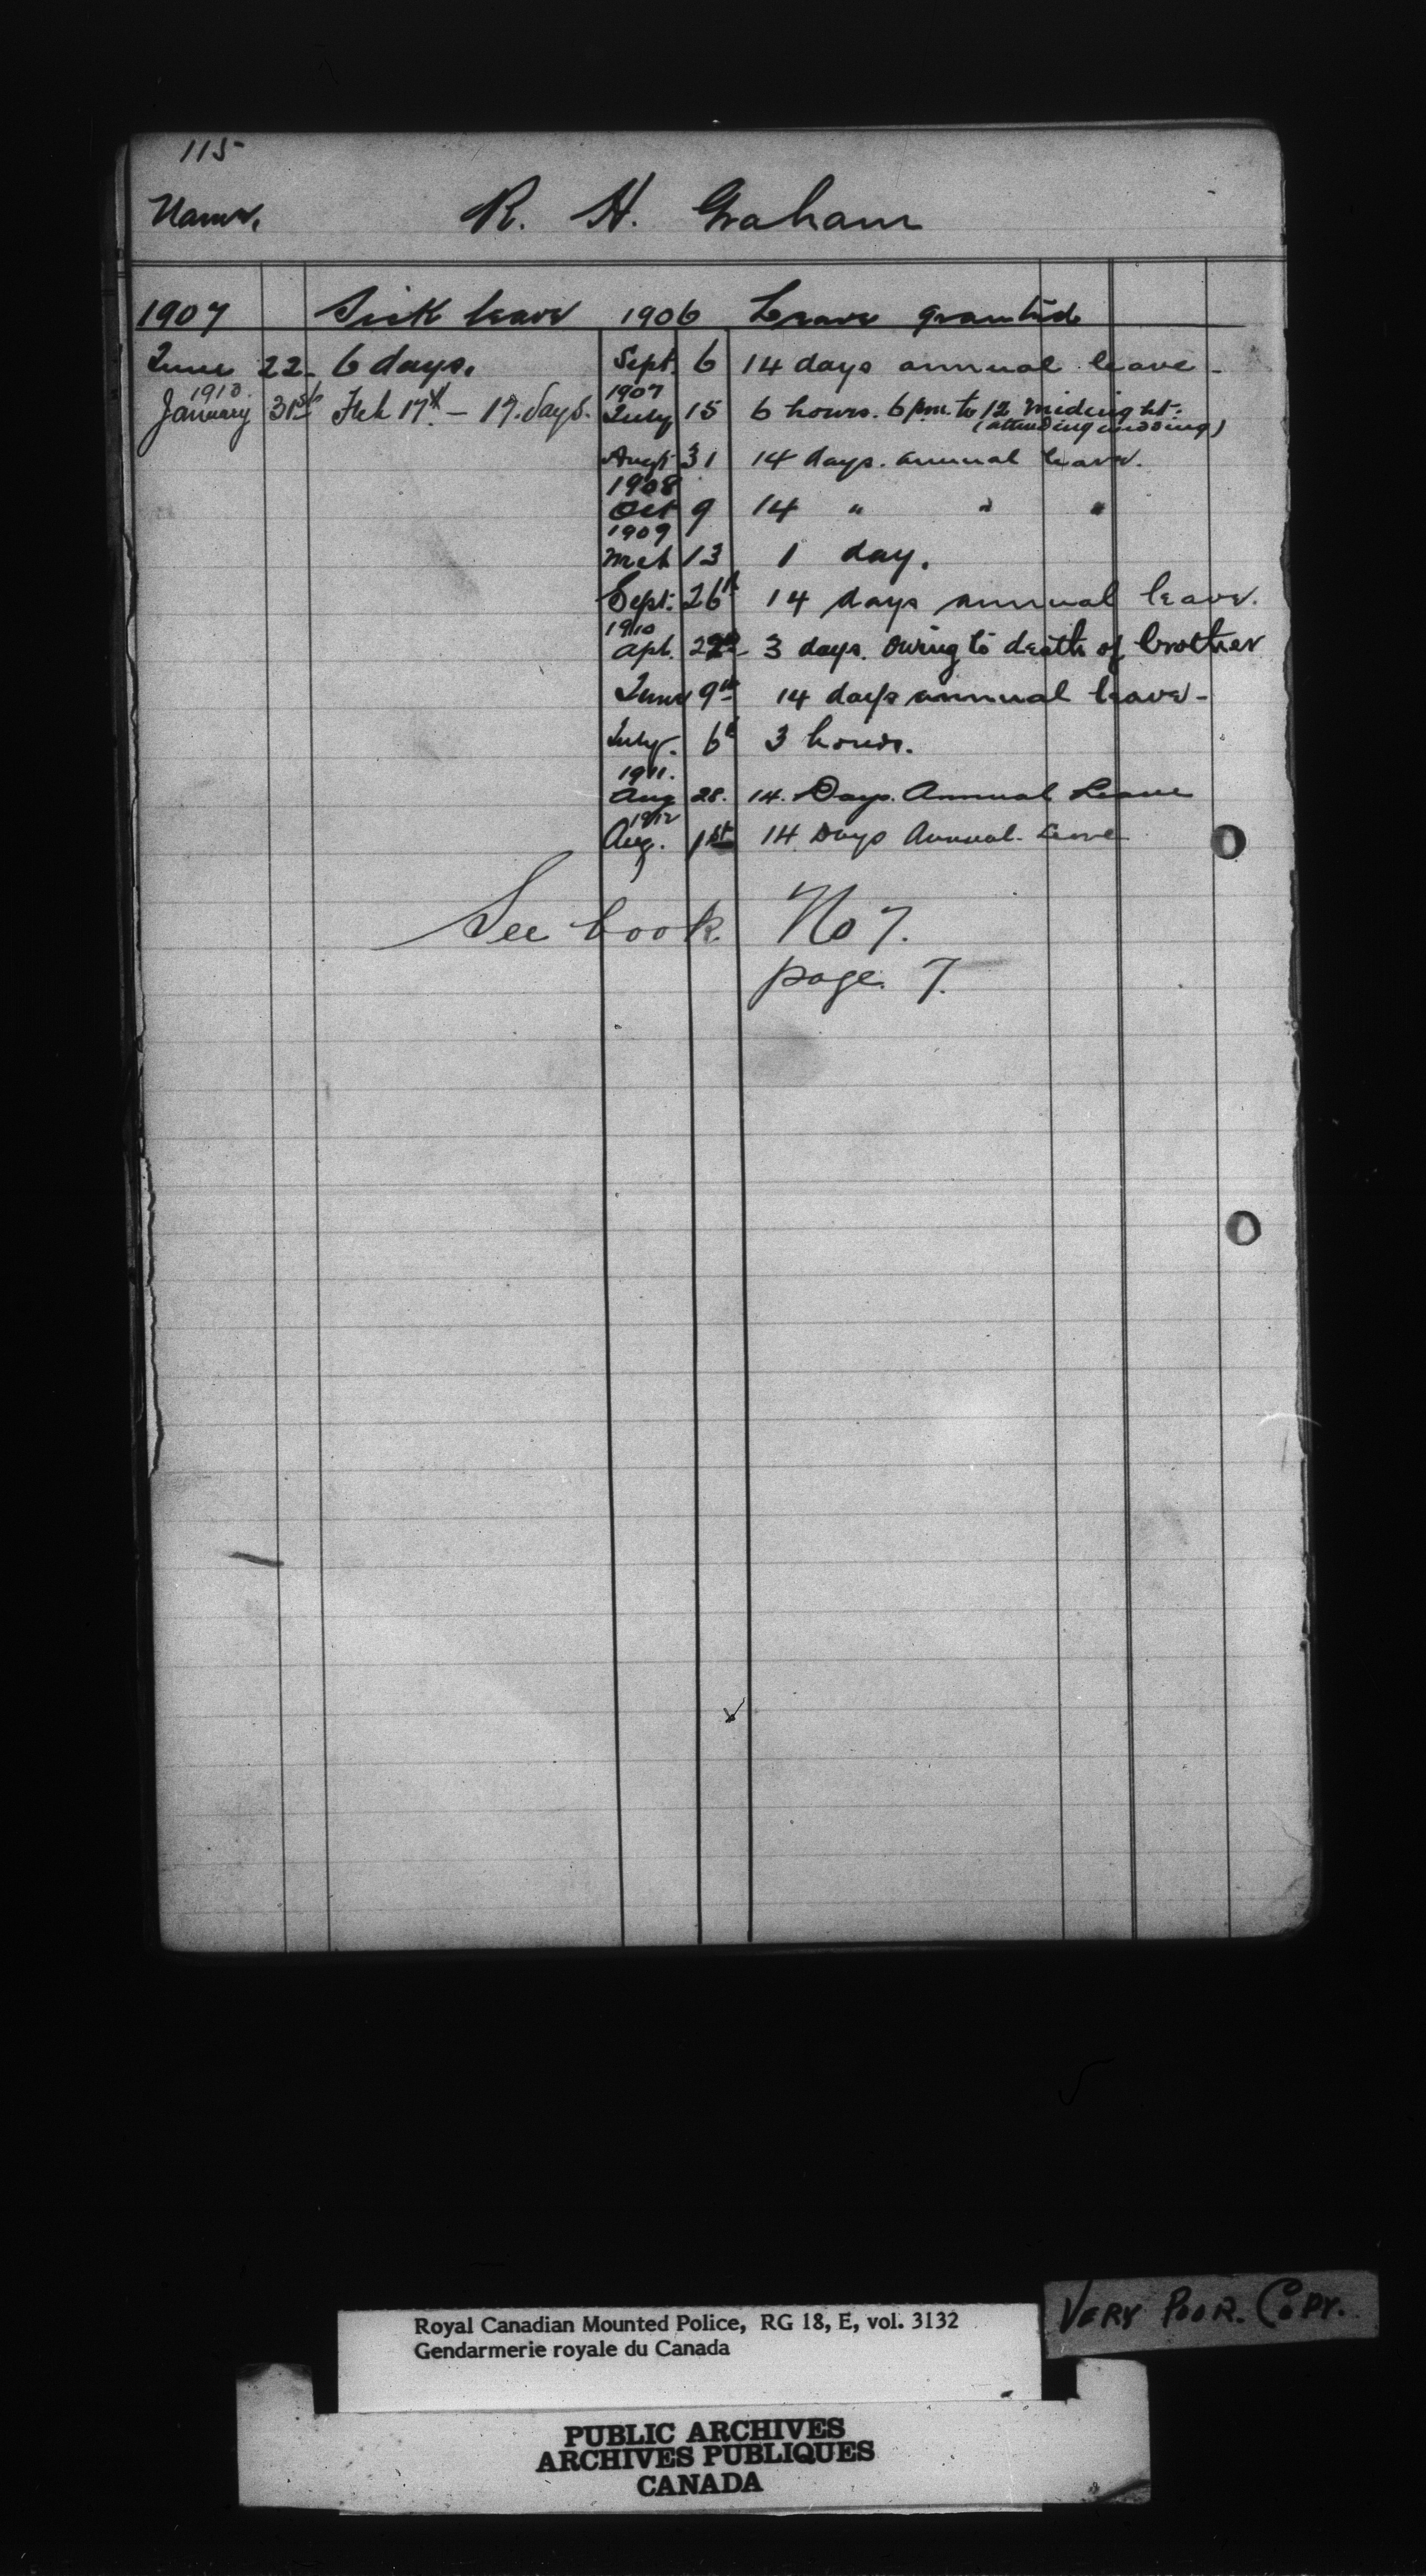 115
Name. R. H. Graham
1907 Sick leave 1906 Leave granted
June 22 6 days. Sept. 6 14 days annual leave -
1910 1907
January 31st Feb 17th - 17. days. July 15 6 hours. 6 p.m. to 12 midnight.
(attending wedding)
Augt 31 14 days. annual leave.
1908
Oct 9 14 " " "
1909
Mch 13 1 day.
Sept. 26th 14 days annual leave.
1910
Apl. 22nd 3 days. owing to death of brother
June 9th 14 days annual leave -
July. 6th 3 hours.
1911.
Aug 28. 14. Days. Annual Leave
1912
Aug. 1st 14 Days Annual. Leave
See book No 7.
page. 7.
VERY POOR. COPY.
Royal Canadian Mounted Police, RG 18, E, vol. 3132
Gendarmerie royale du Canada
PUBLIC ARCHIVES
ARCHIVES PUBLIQUES
CANADA